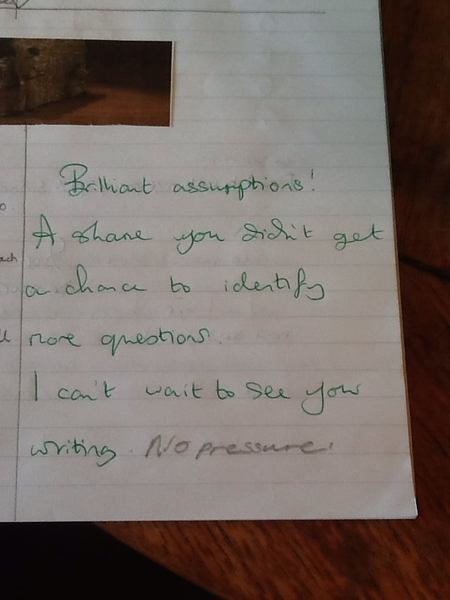 Brilliant assumptions!
A shame you didn't get
a chance to identify
more questions.
I can't wait to see your
writing. No pressure!